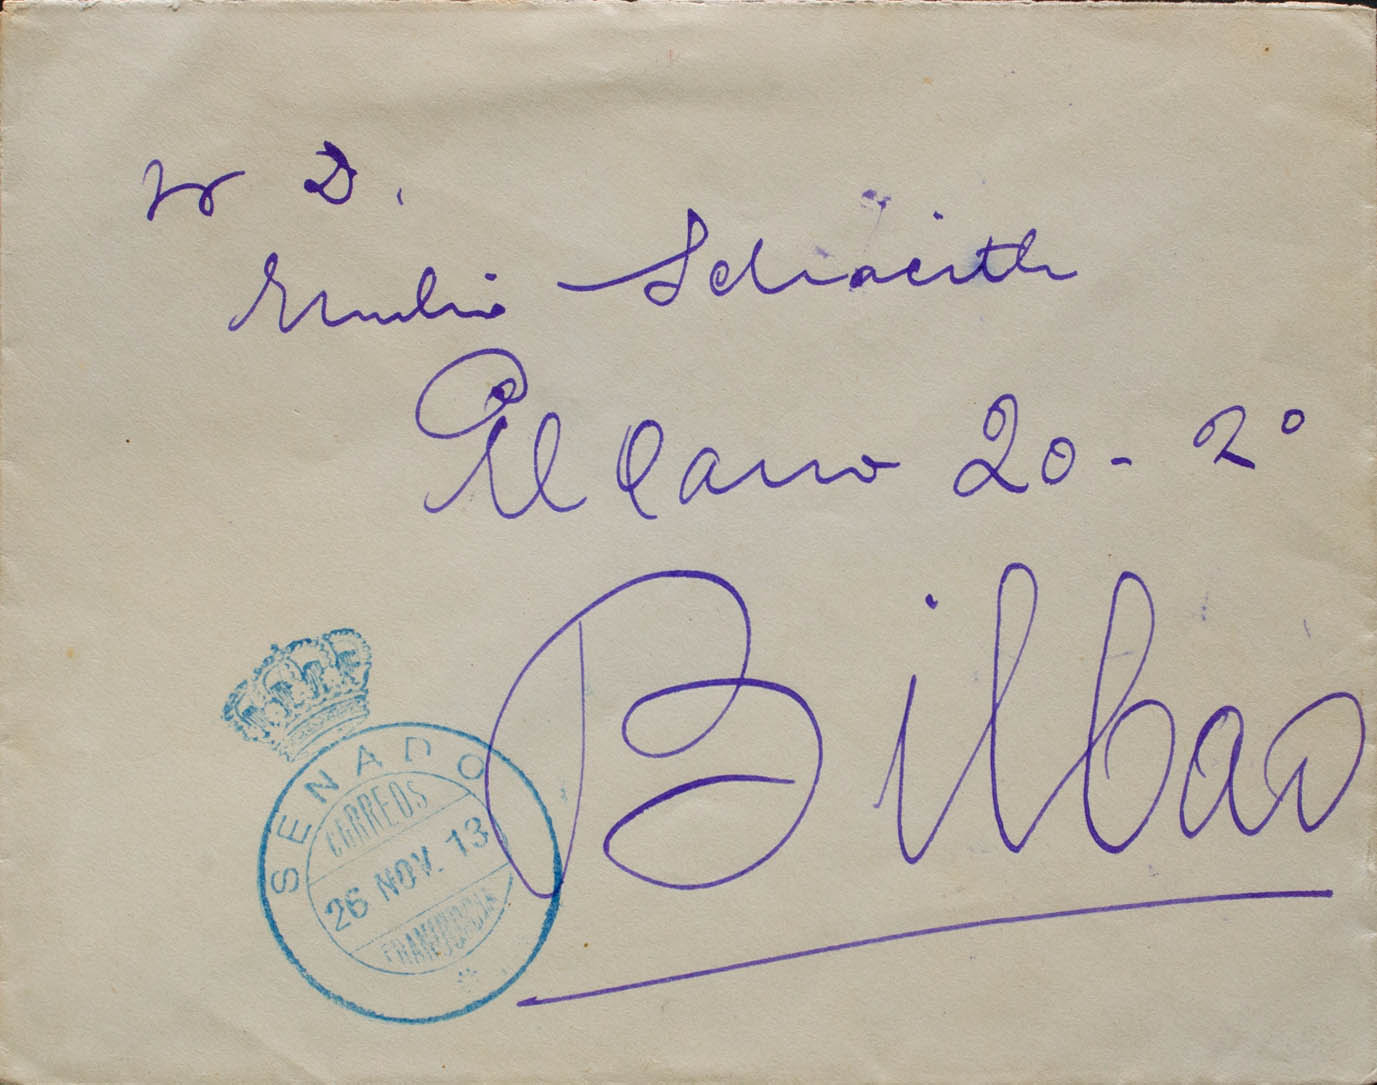 Sr D.
Emilio Schröeith
Elcano 20 - 2º
Bilbao
SENADO
CORREOS
26 NOV. 13
FRANQUICIA